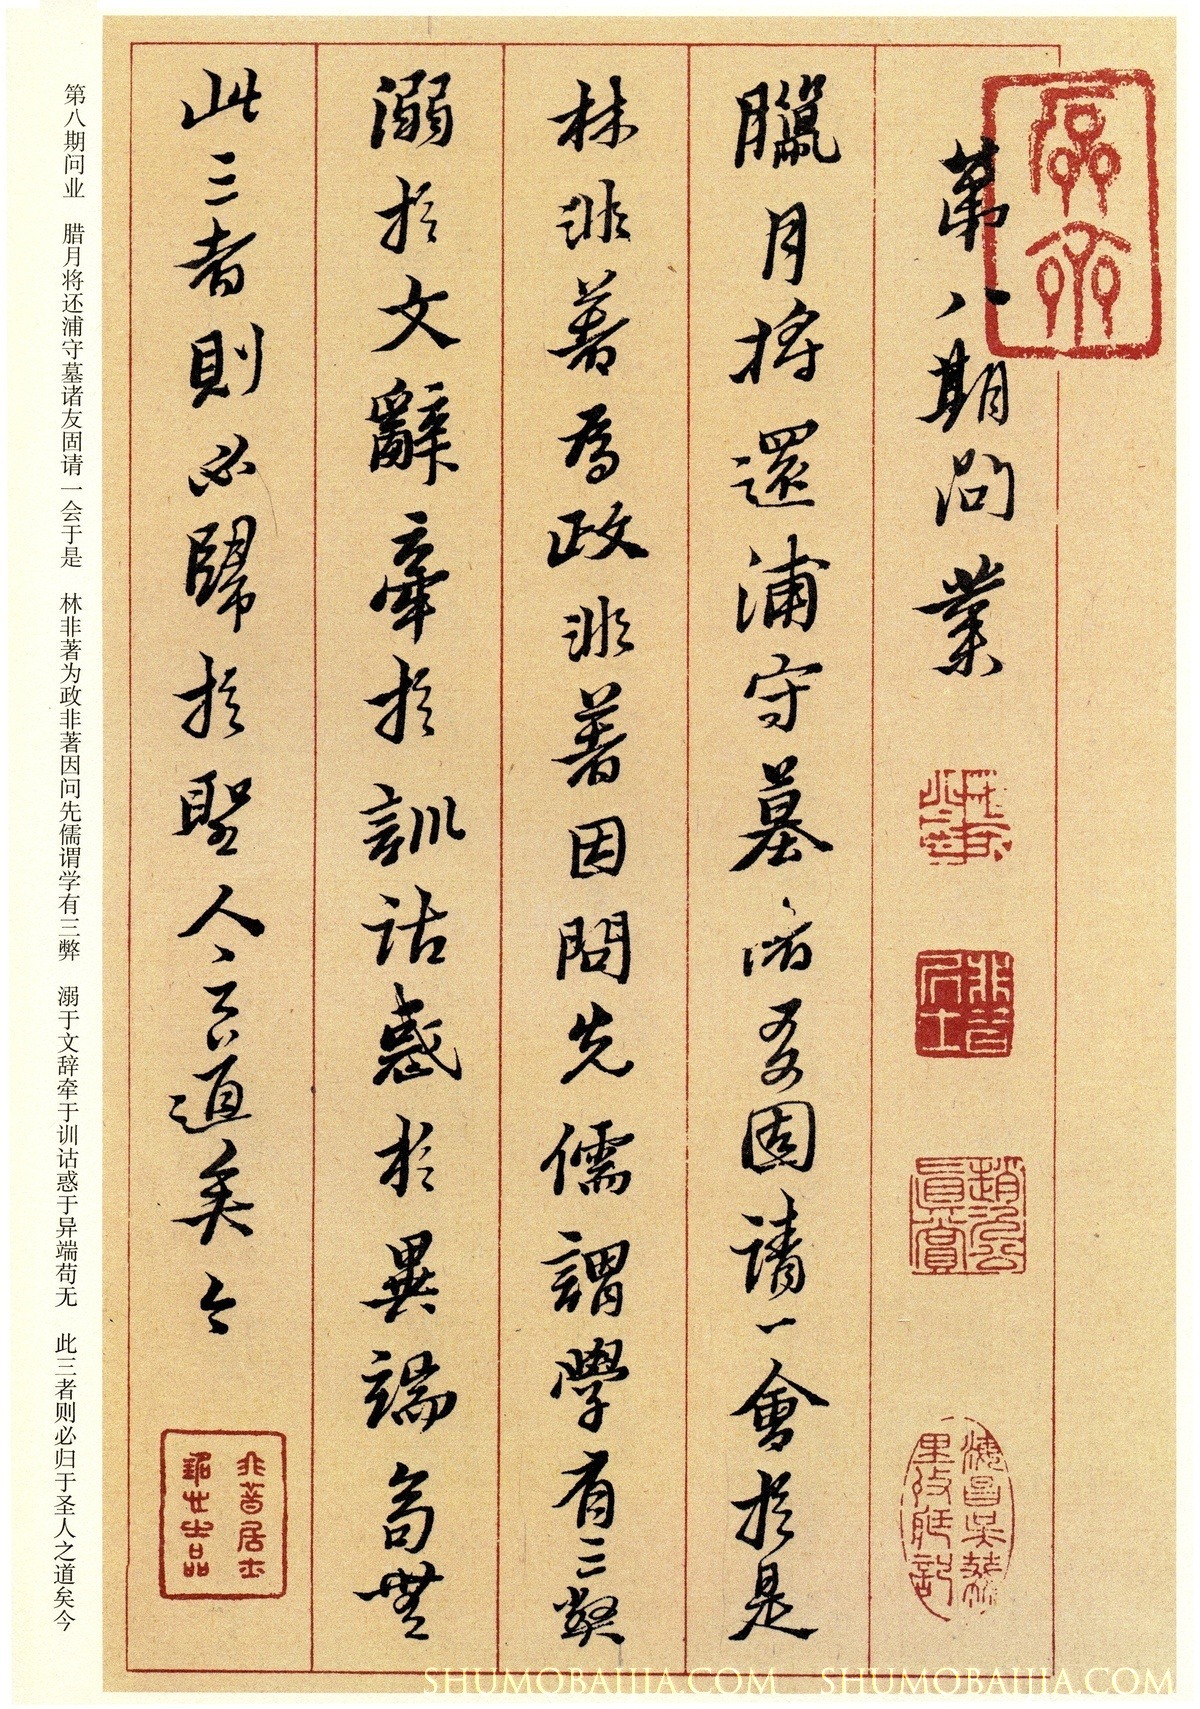 第八期问業
臘月將還浦守墓诸友固请一會於是
林非著為政非著因問先儒謂學有三弊
溺於文辭牽於訓詁惑於異端苟無
此三者則必歸於聖人之道矣今
非著居士
趙 賞
海昌吳
非著居士
品
第八期问业 腊月将还浦守墓诸友固请一会于是 林非著为政非著因问先儒谓学有三弊 溺于文辞牵于训诂惑于异端苟无 此三者则必归于圣人之道矣今
SHUMOBAIJIA.COM SHUMOBAIJIA.COM